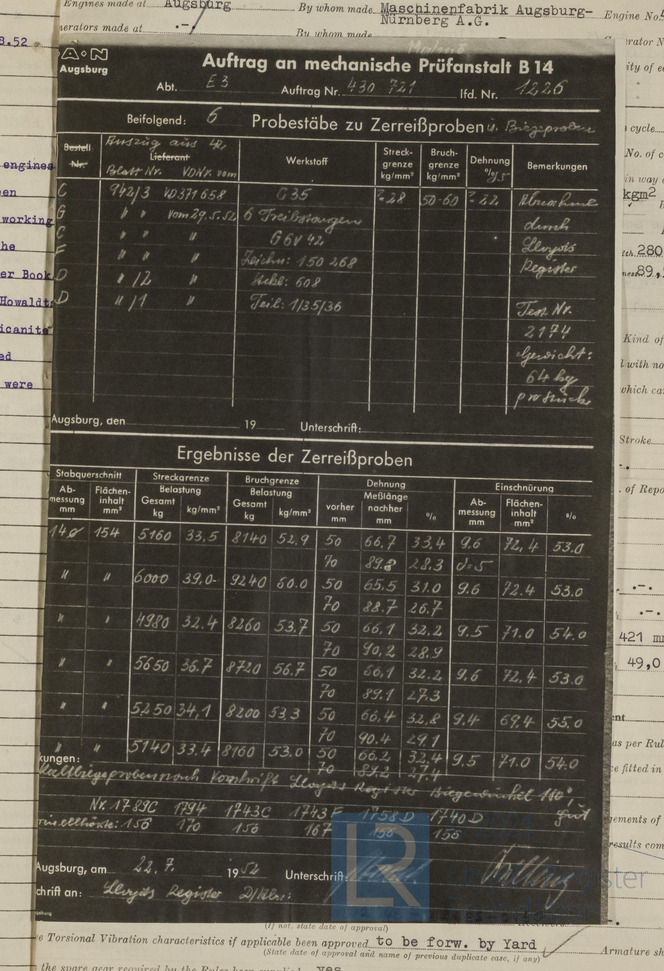 Engines made at Augsburg By whom made Maschinenfabrik Augsburg-Nürnberg A.G. Engine No.
nerators made at .-. By whom made
3.52
ity of e
cycle
No. of c
in way
engines
working
he
er Book
Howaldt
icanite
ed
were
kgm2
280
89,
Kind of
with no
which ca
Stroke
of Repo
421 mm
49,0
ent
as per Rul
e fitted in
ements of
results com
M·A·N
Augsburg
Auftrag an mechanische Prüfanstalt B 14
Abt. E3 Auftrag Nr. 430 721 lfd. Nr. 1226
Beifolgend: 6 Probestäbe zu Zerreißproben u. Biegeproben
Bestell Nr. Auszug aus Lieferant Blatt Nr. VDNr. vom Werkstoff Streckgrenze kg/mm² Bruchgrenze kg/mm² Dehnung % Bemerkungen
C 942/3 VD371658 C35 28 50-60 22 Abnahme
G " " vom 29.5.52 6 Treibstangen durch
C " " " G6V 42 Lloyds
F " " " Zeichn: 150 268 Register
D " /2 " Stckl: 608
D " /1 " Teil: 1/35/36 Test Nr.
2174
Gewicht:
64 kg
pro Stück
Augsburg, den 19 Unterschrift:
Ergebnisse der Zerreißproben
Stabquerschnitt Streckgrenze Bruchgrenze Dehnung Einschnürung
Abmessung mm Flächeninhalt mm² Belastung Gesamt kg kg/mm² Belastung Gesamt kg kg/mm² vorher mm Meßlänge nachher mm % Abmessung mm Flächeninhalt mm² %
14ø 154 5160 33,5 8140 52,9 50 66,7 33,4 9.6 72,4 53.0
70 89.8 28.3 d=5
" " 6000 39,0- 9240 60.0 50 65.5 31.0 9.6 72.4 53.0
70 88.7 26.7
" " 4980 32.4 8260 53.7 50 66.1 32.2 9.5 71.0 54.0
70 90,2 28.9
" " 5650 36.7 8720 56.7 50 66,1 32.2 9.6 72.4 53.0
70 89.1 27.3
" " 5250 34,1 8200 53,3 50 66.4 32,8 9.4 69.4 55.0
70 90.4 29.1
" " 5140 33.4 8160 53.0 50 66.2 32.4 9.5 71.0 54.0
70 89.2 27.4
kungen:
Kaltbiegeproben nach Vorschrift Lloyds Register Biegewinkel gut
Nr. 1789C 1794 1743C 1743F 1758D 1740D
156 170 156 167 156 156
Augsburg, am 22.7. 1952 Unterschrift
chrift an: Lloyds Register
LR
(If not, state date of approval)
e Torsional Vibration characteristics if applicable been approved to be forw. by Yard
(State date of approval and name of previous duplicate case, if any)
Armature sh
the spare gear required by the Rules been supplied yes